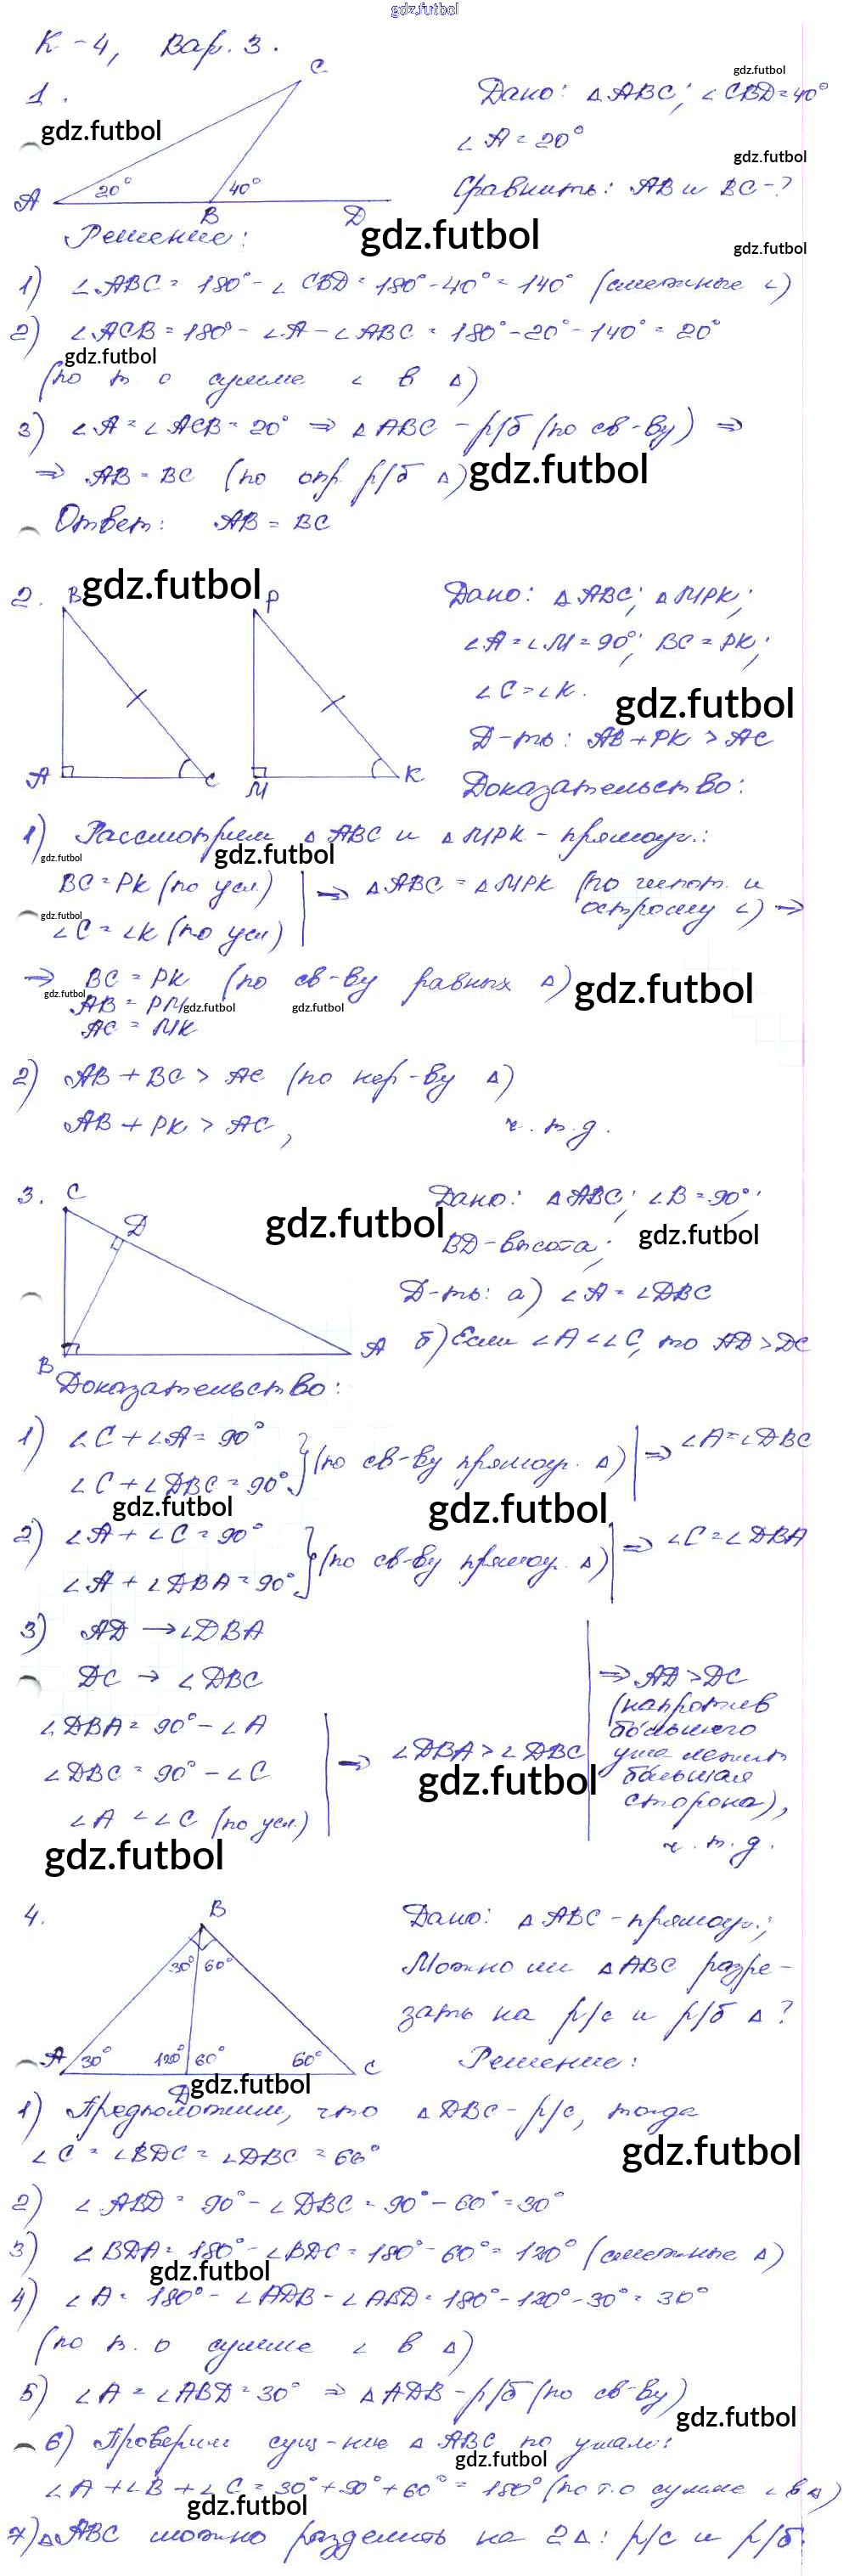 gdz.futbol
К-4, Вар. 3.
1.
C
20° 40°
A B D
gdz.futbol
Дано: △ABC; ∠CBD=40°
∠A = 20°
Сравнить: AB и BC-?
gdz.futbol
gdz.futbol
gdz.futbol
gdz.futbol
Решение:
1) ∠ABC = 180° - ∠CBD = 180° - 40° = 140° (смежные ∠)
2) ∠ACB = 180° - ∠A - ∠ABC = 180° - 20° - 140° = 20°
gdz.futbol
(по т о сумме ∠ в △)
3) ∠A = ∠ACB = 20° ⇒ △ABC - р/б (по св-ву) ⇒
⇒ AB = BC (по опр р/б △)
gdz.futbol
Ответ: AB = BC
2. B P
A C M K
gdz.futbol
Дано: △ABC; △MPK;
∠A = ∠M = 90°; BC = PK;
∠C = ∠K.
gdz.futbol
Д-ть: AB + PK > AC
Доказательство:
1) Рассмотрим △ABC и △MPK - прямоуг.:
gdz.futbol
gdz.futbol
BC = PK (по усл.)
∠C = ∠K (по усл)
⇒ △ABC = △MPK (по гипот. и
острому ∠) ⇒
gdz.futbol
⇒ BC = PK (по св-ву равных △)
AB = PM
AC = MK
gdz.futbol
gdz.futbol
gdz.futbol
gdz.futbol
2) AB + BC > AC (по нер-ву △)
AB + PK > AC, ч.т.д.
3. C
D
B A
gdz.futbol
Дано: △ABC; ∠B = 90°;
BD - высота;
gdz.futbol
Д-ть: а) ∠A = ∠DBC
б) Если ∠A < ∠C, то AD > DC
Доказательство:
1) ∠C + ∠A = 90°
∠C + ∠DBC = 90°
(по св-ву прямоуг. △) ⇒ ∠A = ∠DBC
gdz.futbol
gdz.futbol
2) ∠A + ∠C = 90°
∠A + ∠DBA = 90°
(по св-ву прямоуг. △) ⇒ ∠C = ∠DBA
3) AD → ∠DBA
DC → ∠DBC
∠DBA = 90° - ∠A
∠DBC = 90° - ∠C
∠A < ∠C (по усл.)
⇒ ∠DBA > ∠DBC
⇒ AD > DC
(напротив
большего
угла лежит
большая
сторона),
ч.т.д.
gdz.futbol
gdz.futbol
4. B
30° 60°
A 30° 120° 60° 60° C
D
gdz.futbol
Дано: △ABC - прямоуг.;
Можно ли △ABC разре-
зать на р/с и р/б △?
Решение:
1) Предположим, что △DBC - р/с, тогда
∠C = ∠BDC = ∠DBC = 60°
gdz.futbol
2) ∠ABD = 90° - ∠DBC = 90° - 60° = 30°
3) ∠BDA = 180° - ∠BDC = 180° - 60° = 120° (смежные △)
gdz.futbol
4) ∠A = 180° - ∠ADB - ∠ABD = 180° - 120° - 30° = 30°
(по т. о сумме ∠ в △)
5) ∠A = ∠ABD = 30° ⇒ △ADB - р/б (по св-ву)
gdz.futbol
6) Проверим сущ-ние △ABC по углам:
gdz.futbol
∠A + ∠B + ∠C = 30° + 90° + 60° = 180° (по т. о сумме ∠ в △)
gdz.futbol
7) △ABC можно разделить на 2△: р/с и р/б.